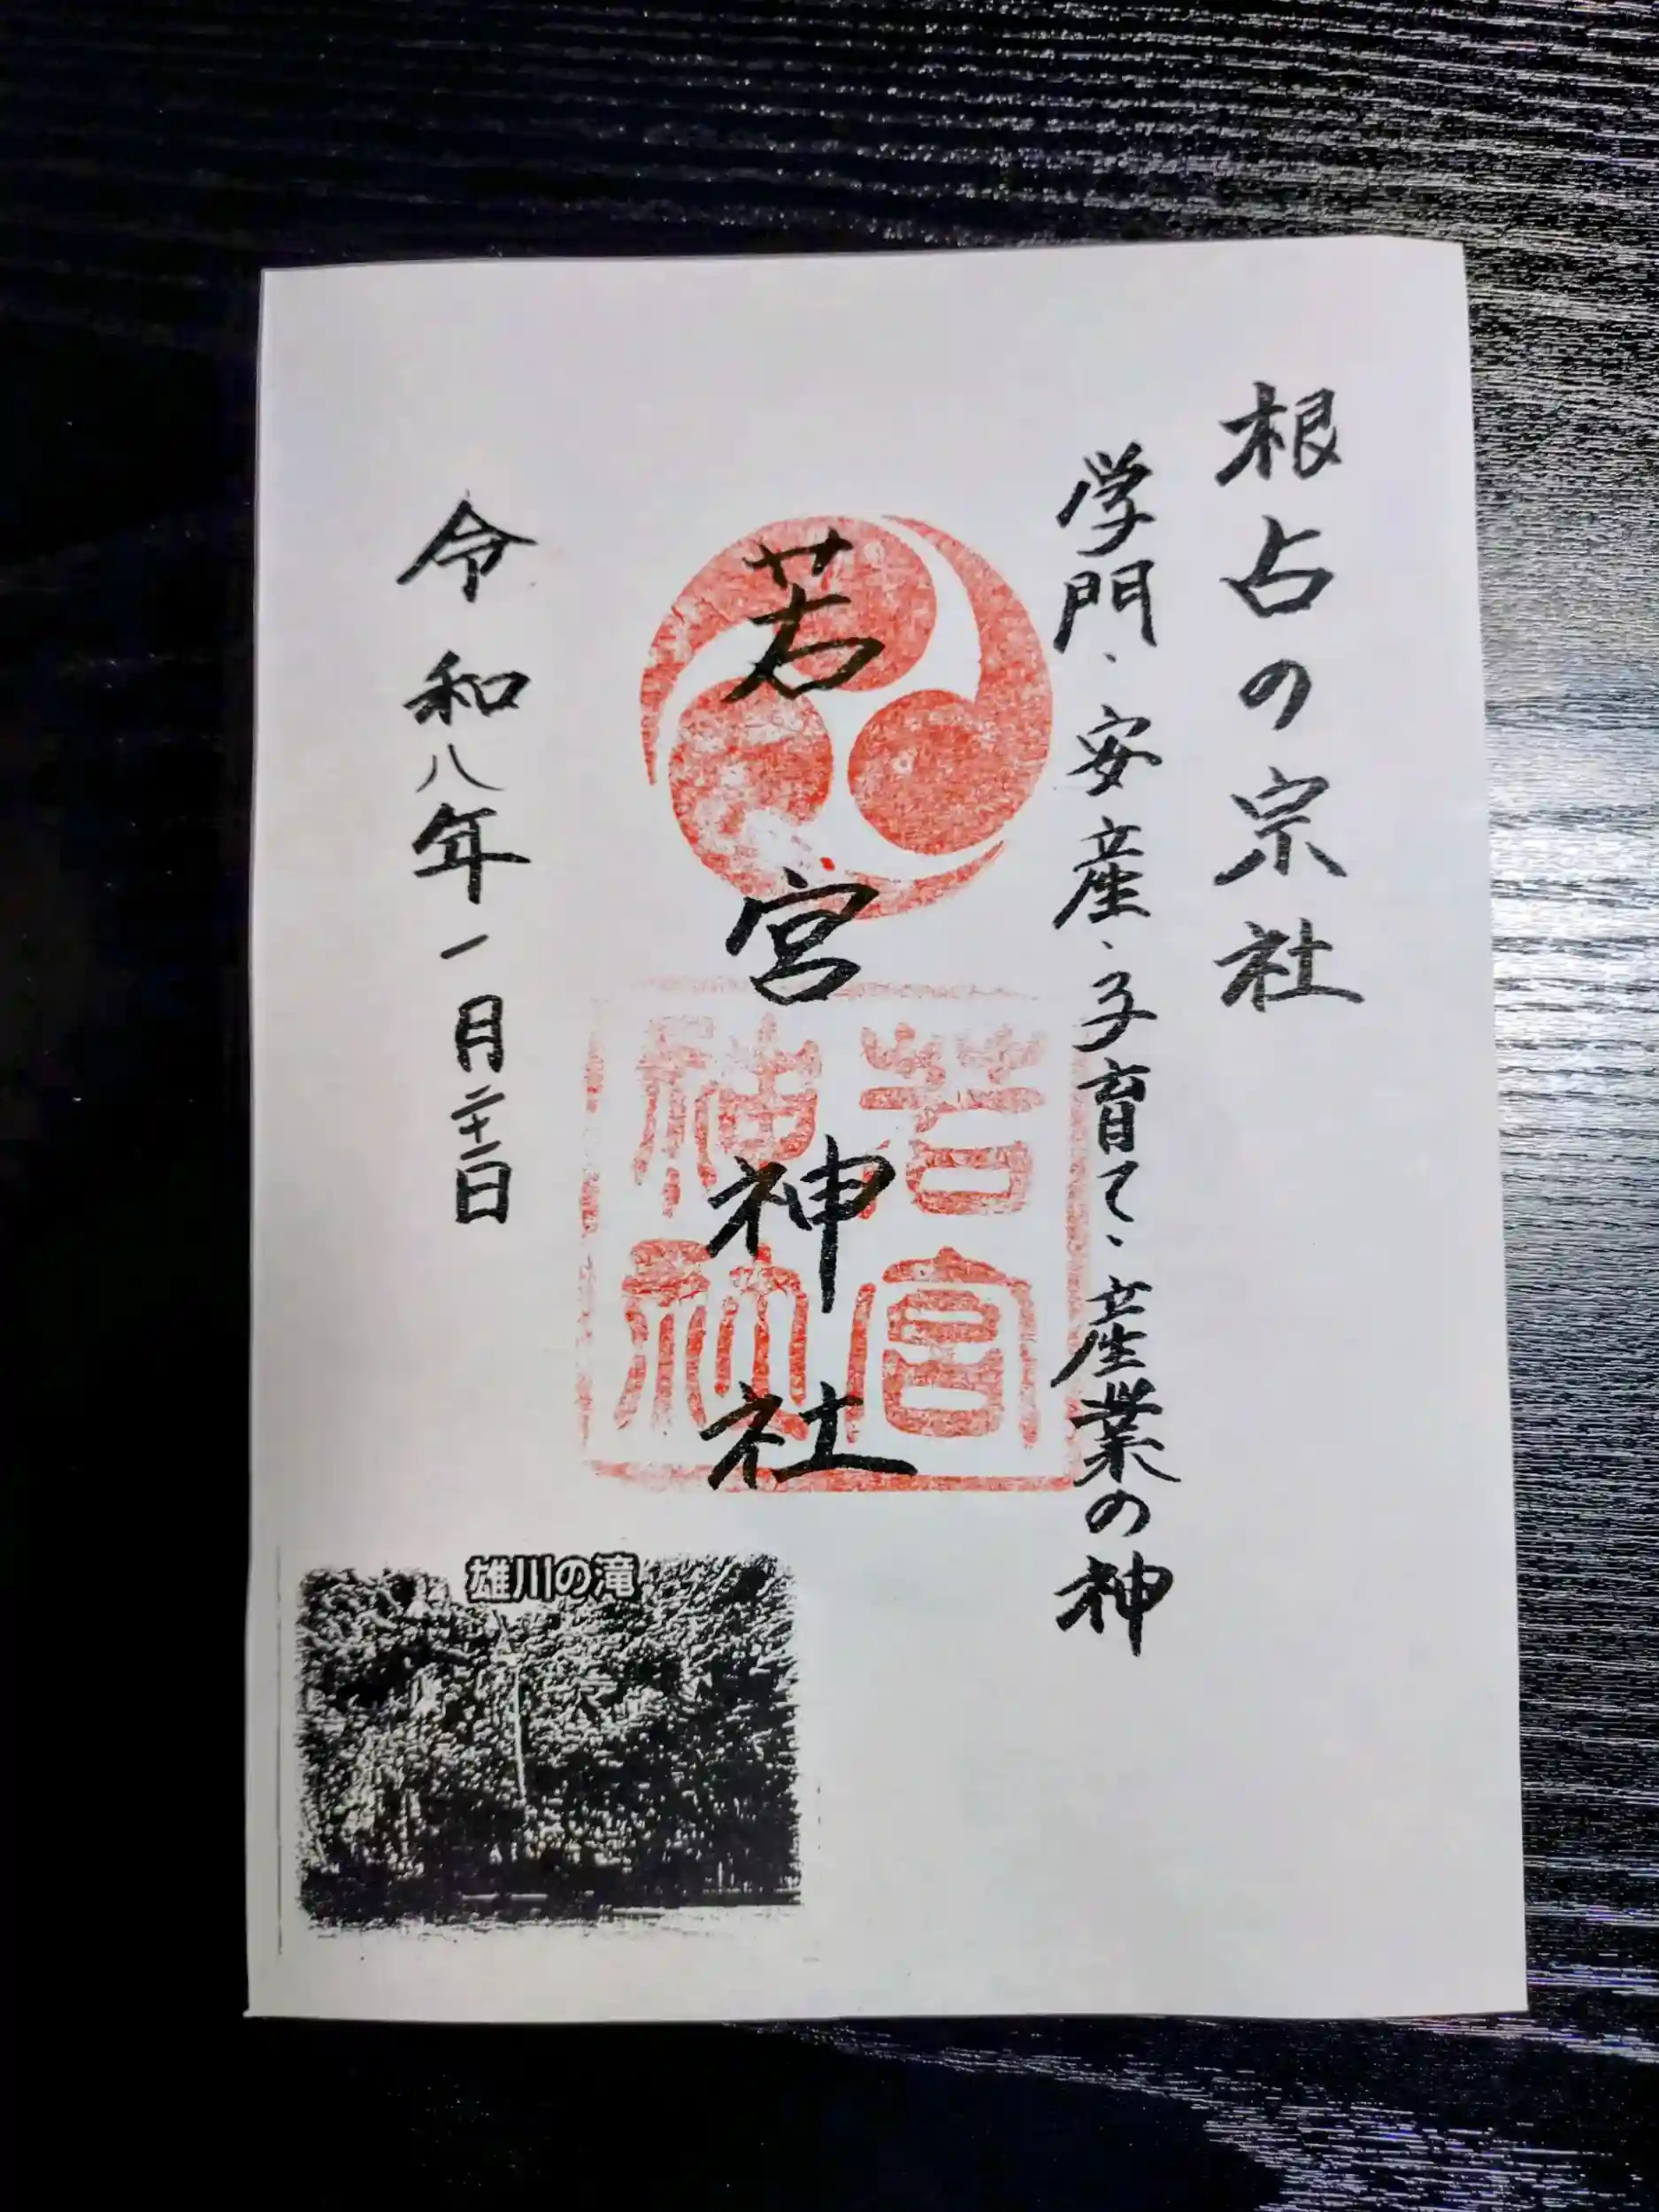 根占の宗社
学門、安産、子育て、産業の神
若宮神社
若宮
神社
令和八年一月二十二日
雄川の滝